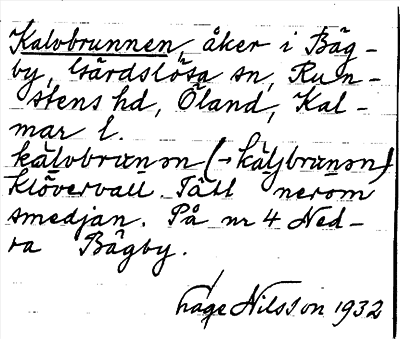 Kalvbrunnen, åker i Bäg-
by, Gärdslösa sn, Run-
stens hd, Öland, Kal-
mar l.
kälvbrunən (→käljbrunən)
Klövervall. Tätt nerom
smedjan. På nr 4 Ned-
ra Bägby.
Håge Nilsson 1932